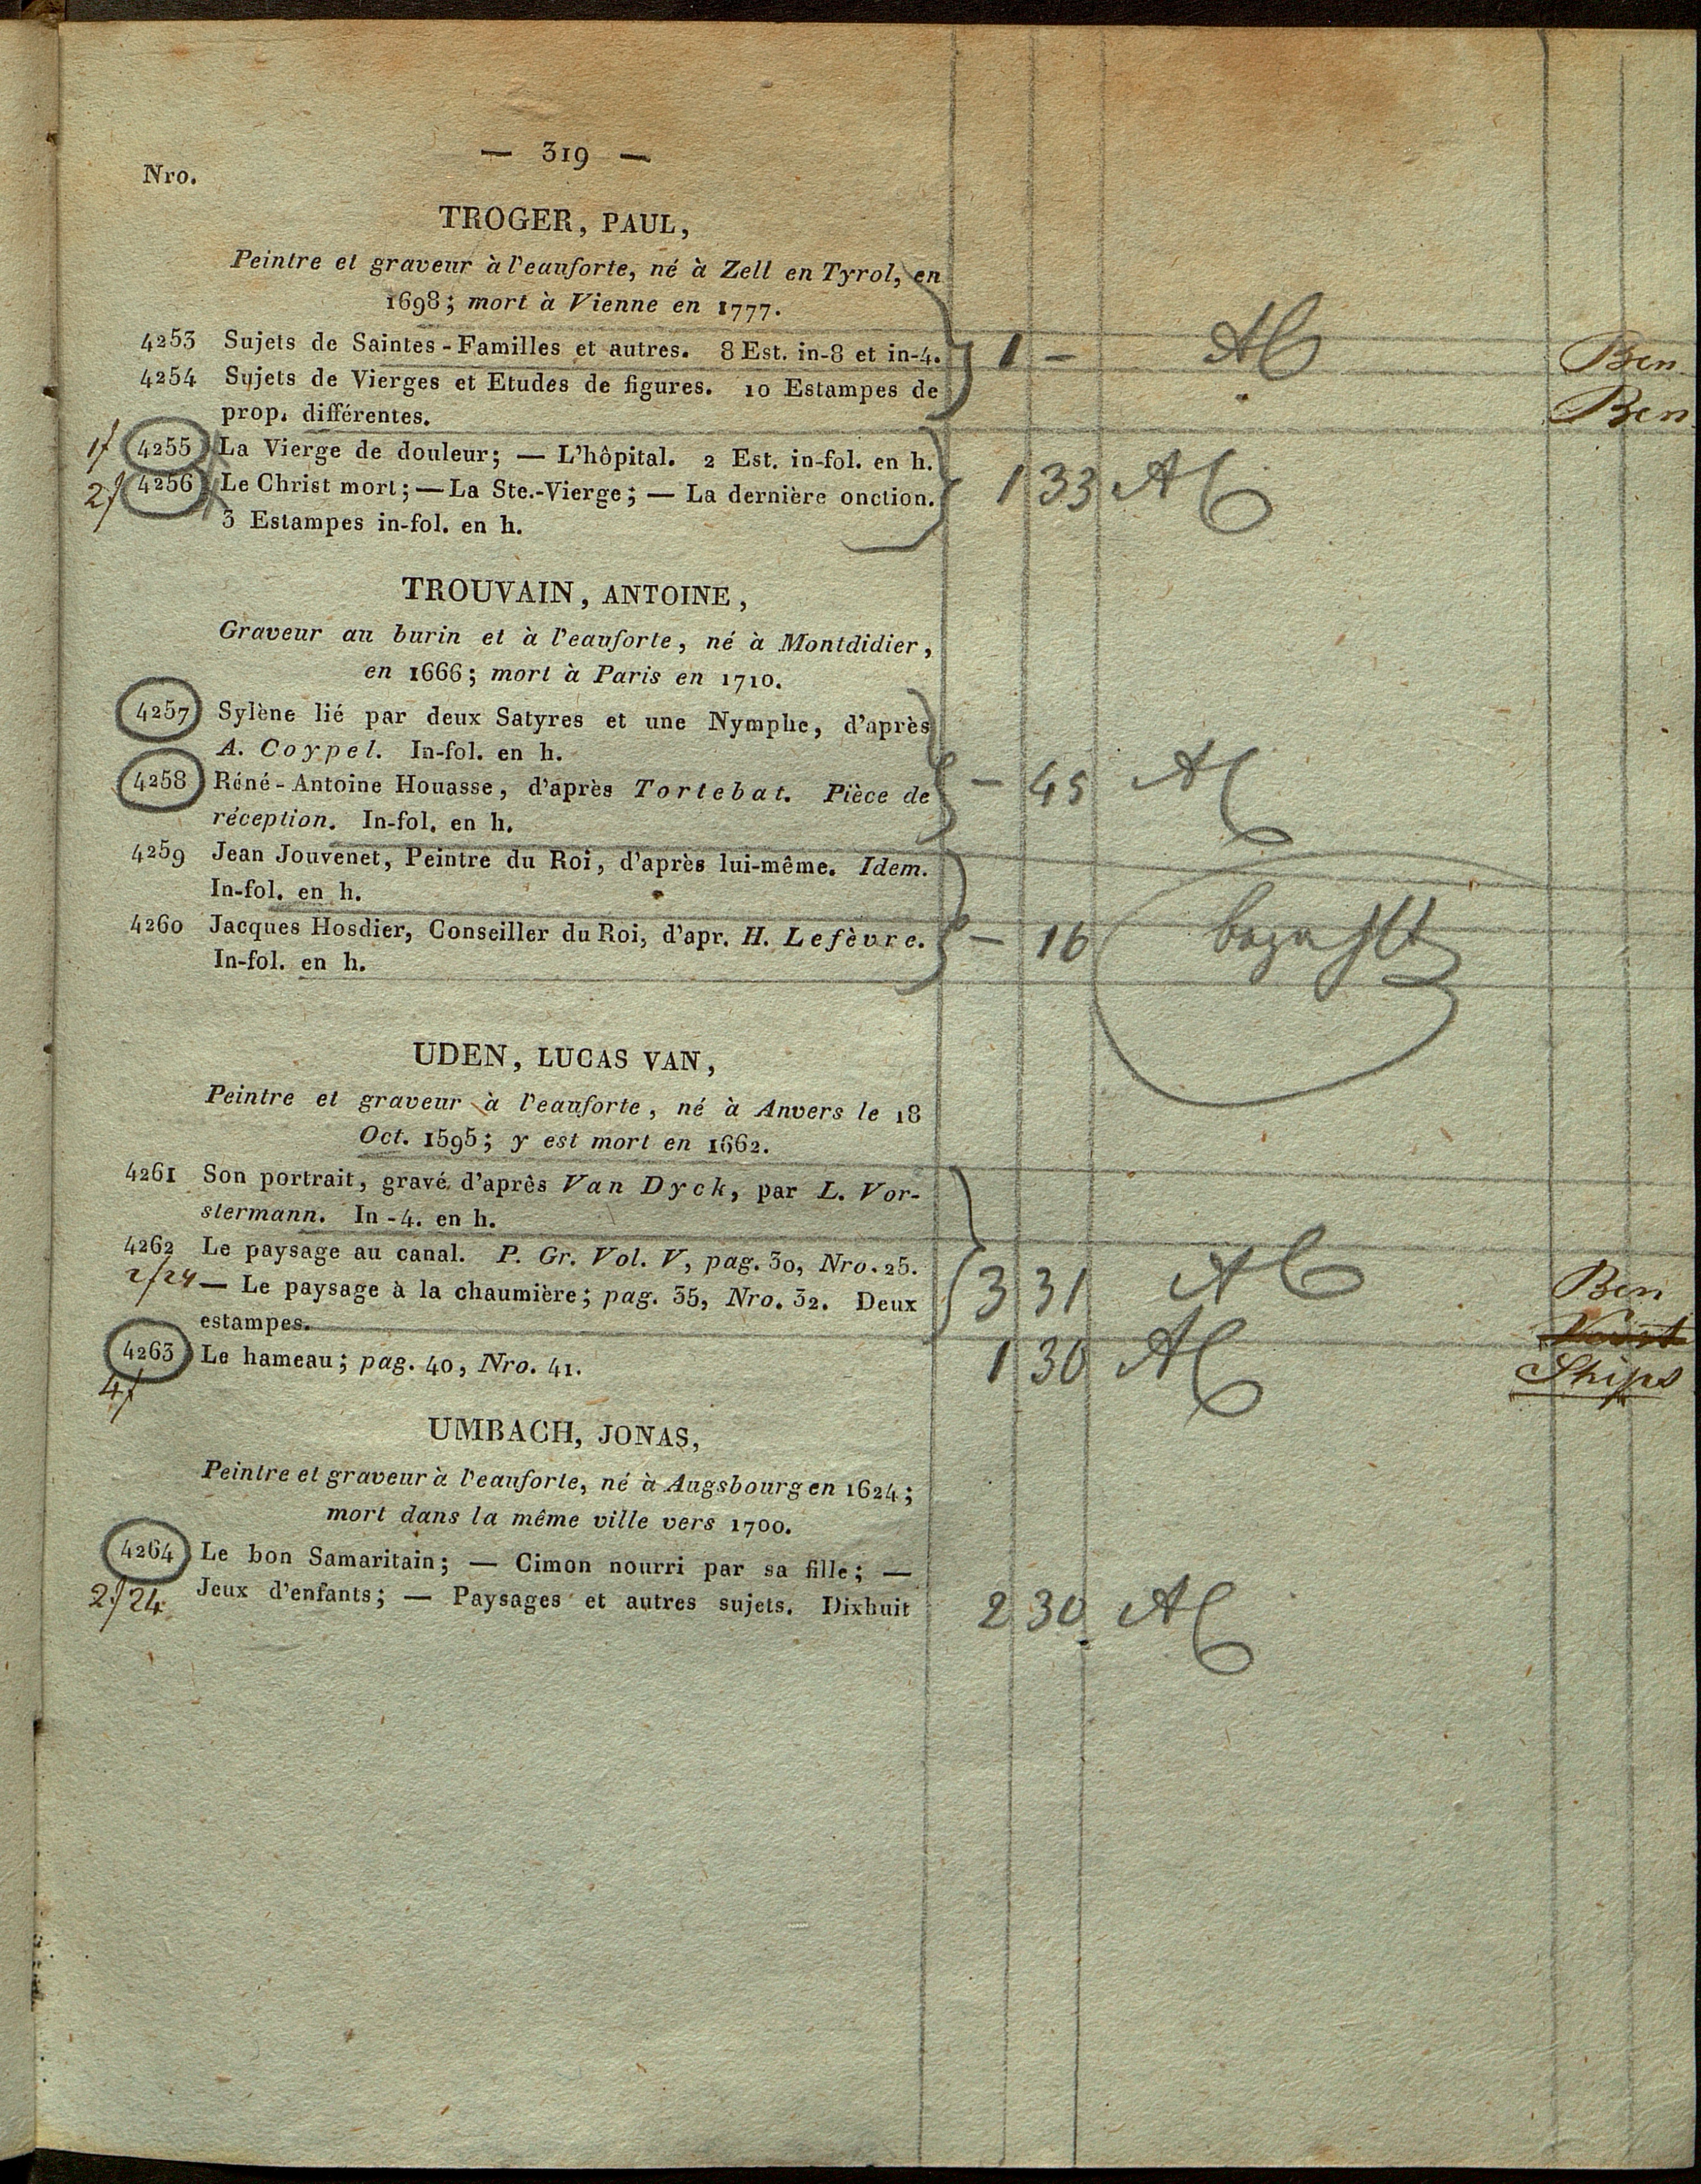 — 319 —
Nro.
TROGER, PAUL,
Peintre et graveur à l'eauforte, né à Zell en Tyrol, en
1698; mort à Vienne en 1777.
4253 Sujets de Saintes-Familles et autres. 8 Est. in-8 et in-4. 1 — Ben
4254 Sujets de Vierges et Etudes de figures. 10 Estampes de Ben
prop. différentes.
1f 4255 La Vierge de douleur; — L'hôpital. 2 Est. in-fol. en h.
2f 4256 Le Christ mort; — La Ste.-Vierge; — La dernière onction. 1 33
3 Estampes in-fol. en h.
TROUVAIN, ANTOINE,
Graveur au burin et à l'eauforte, né à Montdidier,
en 1666; mort à Paris en 1710.
4257 Sylène lié par deux Satyres et une Nymphe, d'après
A. Coypel. In-fol. en h.
4258 Réné-Antoine Houasse, d'après Tortebat. Pièce de — 45
réception. In-fol. en h.
4259 Jean Jouvenet, Peintre du Roi, d'après lui-même. Idem.
In-fol. en h.
4260 Jacques Hosdier, Conseiller du Roi, d'apr. H. Lefèvre. — 16 bezahlt
In-fol. en h.
UDEN, LUCAS VAN,
Peintre et graveur à l'eauforte, né à Anvers le 18
Oct. 1595; y est mort en 1662.
4261 Son portrait, gravé d'après Van Dyck, par L. Vor-
stermann. In-4. en h.
4262 Le paysage au canal. P. Gr. Vol. V, pag. 30, Nro. 25.
2f24 — Le paysage à la chaumière; pag. 35, Nro. 32. Deux 3 31 Ben
estampes.
4263 Le hameau; pag. 40, Nro. 41. 1 30
4f
UMBACH, JONAS,
Peintre et graveur à l'eauforte, né à Augsbourg en 1624;
mort dans la même ville vers 1700.
4264 Le bon Samaritain; — Cimon nourri par sa fille; —
2f24 Jeux d'enfants; — Paysages et autres sujets. Dixhuit 2 30